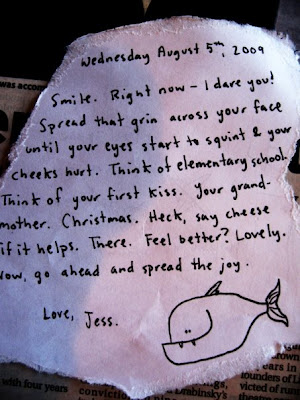 was accom
Wednesday August 5th, 2009
Smile. Right now - I dare you!
Spread that grin across your face
until your eyes start to squint & your
cheeks hurt. Think of elementary school.
Think of your first kiss. Your grand-
mother. Christmas. Heck, say cheese
if it helps. There. Feel better? Lovely.
Now, go ahead and spread the joy.
Love, Jess.
ears in
founders of Li
victed of
with four years
conviction
Drabinsky's